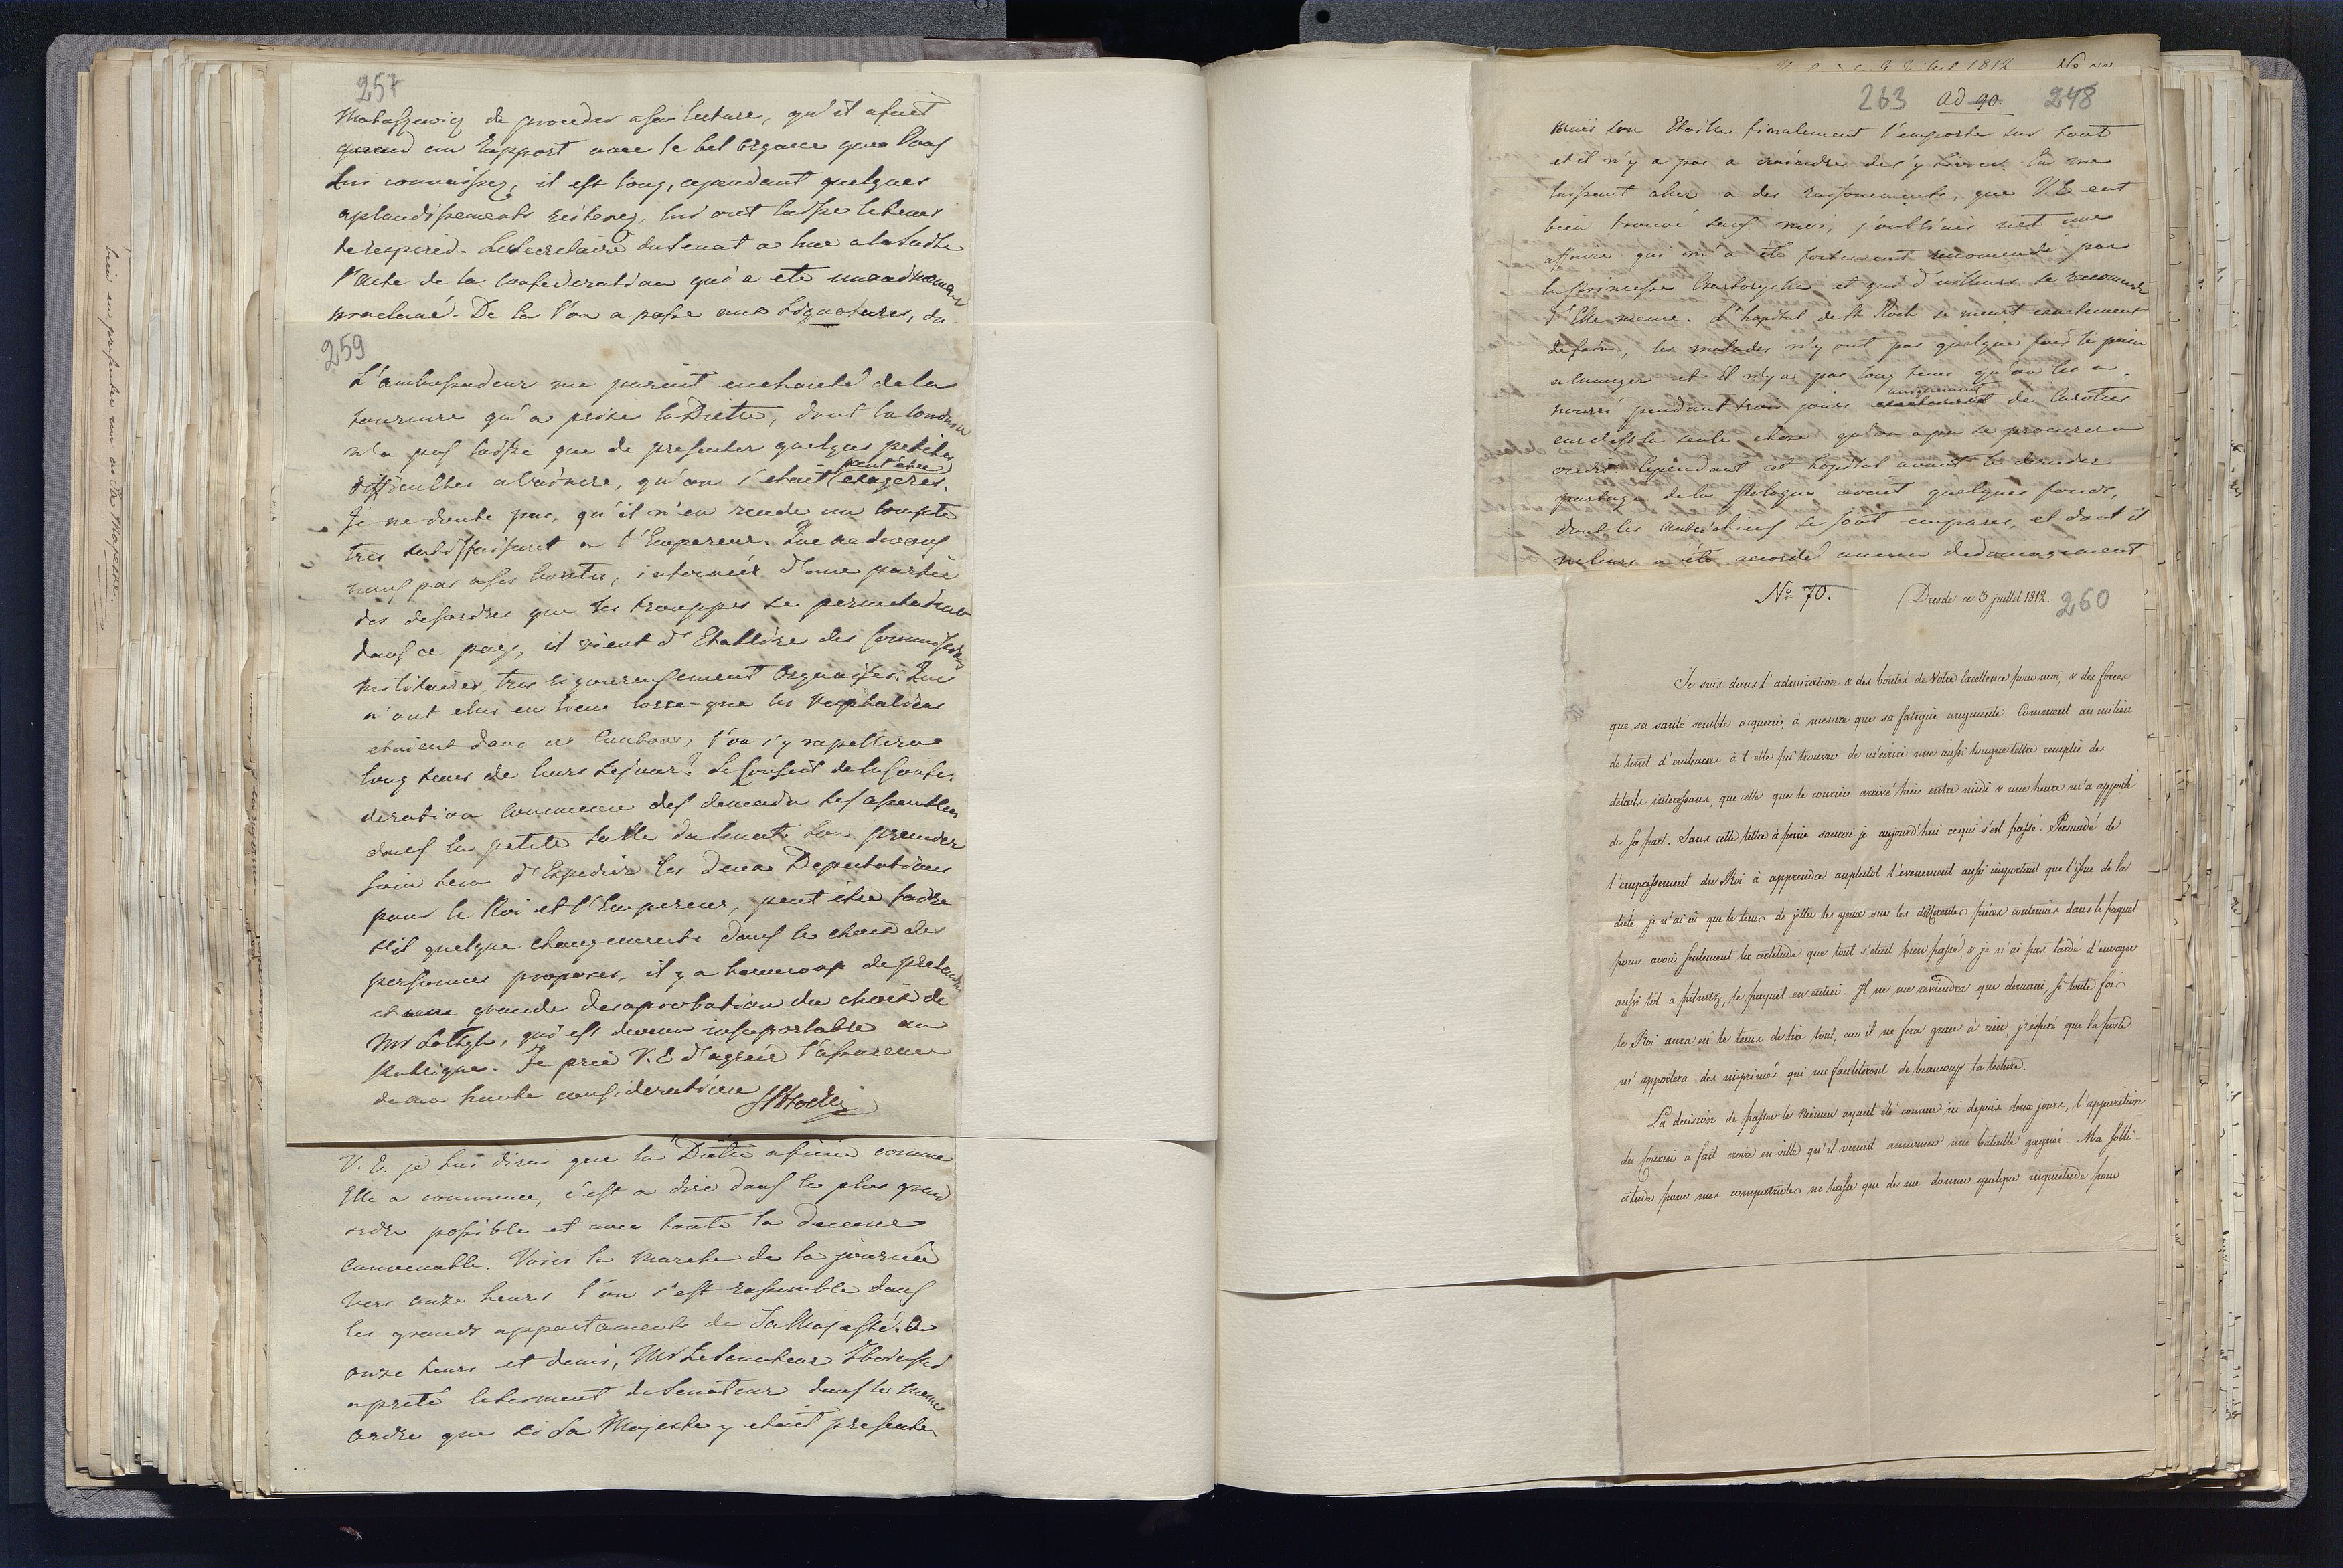 257
de proceder a sa lecture, qu'il a fait
quand un rapport avec le bel organe que Vous
lui connaissez, il est long, cependant quelques
aplaudissements reiterez, lui ont laisse le tems
de respirer. Le Secretaire du Senat a lue a la suite
l'acte de la confederation qui a ete unanimement
proclamé. De la l'on a passe aux signatures, du
259
L'ambassadeur me parait enchanté de la
tournure qu'a prise la Diette, dont la conduite
n'a pas laisse que de presenter quelques petites
difficultes a vaincre, qu'on s'etait peut être exageres.
Je ne doute pas, qu'il n'en rende un compte
tres satisfaisant a l'Empereur. Que ne devons
nous pas a ses bontes, informé d'une partie
des desordres que les trouppes se permettaient
dans ce pays, il vient d'Etablire des Commissions
militaires, tres rigoureusement organisés. Que
n'ont elles eu lieu lorsque les Vesphaliens
etaient dans ces Cantons, l'on s'y rapellera
long tems de leurs sejour! Le Conseil de la Confe-
deration commence des demain ses assemblées
dans la petite salle du Senat. Son premier
soin sera d'Expedier les deux Deputations
pour le Roi et l'Empereur, peut être faira
t-il quelque changements dans le choix des
personnes proposes, il y a beaucoup de
et une grande desaprobation du choix de
Mr qui est devenu insuportable au
Publique. Je prie V. E. d'agreér l'assurence
de ma haute consideration
V. E. je lui dirai que la Diette a finie comme
Elle a commencee, c'est a dire dans le plus grand
ordre possible et avec toute la decence
convenable. Voici la marche de la journée
vers onze heurs l'on s'est rassemble dans
les grands appartaments de Sa Majesté. A
onze heurs et demi, Mr le Senateur
a prete le serment de Senateur dans le meme
ordre que si Sa Majeste y etait presente
263 ad 90. 248
mais son Etoile finalement l'emporte sur tout
et il n'y a pas a craindre de s'y livrer. En me
laissant aller a des raisonements, que V. E. eut
bien trouvé sans moi, j'oubliais net une
affaire qui m'a été fortement recomendé par
la Princesse Czartoryska et qui d'ailleurs se recomende
d'Elle meme. L'hopital de St Roch se meurt exactement
de faim, les malades n'y ont pas quelque fois le pain
a manger et il n'y a pas long tems qu'on les a
nourri pendant trois jours uniquement de Carottes
car c'est la seule chose qu'on a pu se procurer a
credit. Cependant cet hopital avant le dernier
partage de la Pologne avait quelques fonds,
dont les Autrichiens se sont emparés, et dont il
ne leurs a été accordé aucun dedomagement
No 70. Dresde ce 3 juillet 1812. 260
Je suis dans l'admiration & des bontés de Votre Excellence pour moi, & des forces
que sa santé semble acquerir, à mesure que sa fatigue augmente. Comment au milieu
de tant d'embarras à t'elle pû trouver de m'écrire une aussi longue lettre remplie des
details interessans, que celle que le courier arrivé hier entre midi & une heure m'a apporté
de sa part. Sans cette lettre à peine saurai-je aujourd'hui ce qui s'est passé. Persuadé de
l'empressement du Roi à apprendre auplutôt l'evenement aussi important que l'issue de la
diete, je n'ai eû que le tems de jetter les yeux sur les differentes pièces contenues dans le paquet
pour avoir seulement la certitude que tout s'était bien passé, & je n'ai pas tardé d'envoyer
aussi tôt à pilnitz, le paquet en entier. Il ne me reviendra que demain, si toute fois
le Roi aura eû le tems de lire tout, car il ne fera grace à rien, j'espère que la poste
m'apportera des imprimés qui me faciliteront de beaucoup la lecture.
La decision de passer le Niemen ayant été connue ici depuis deux jours, l'apparition
du Courier à fait croire en ville qu'il venait annoncer une bataille gagnée. Ma solli-
citude pour mes compatriotes ne laisse que de me donner quelque inquietude pour